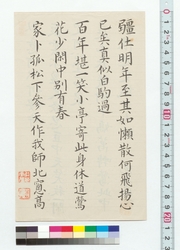 彊仕明年至其如懶散何飛揚心
已矣真似白駒過
百年堪一笑小亭寄此身休道鶯
花少閑中別有春
家卜孤松下參天作我師北窓高